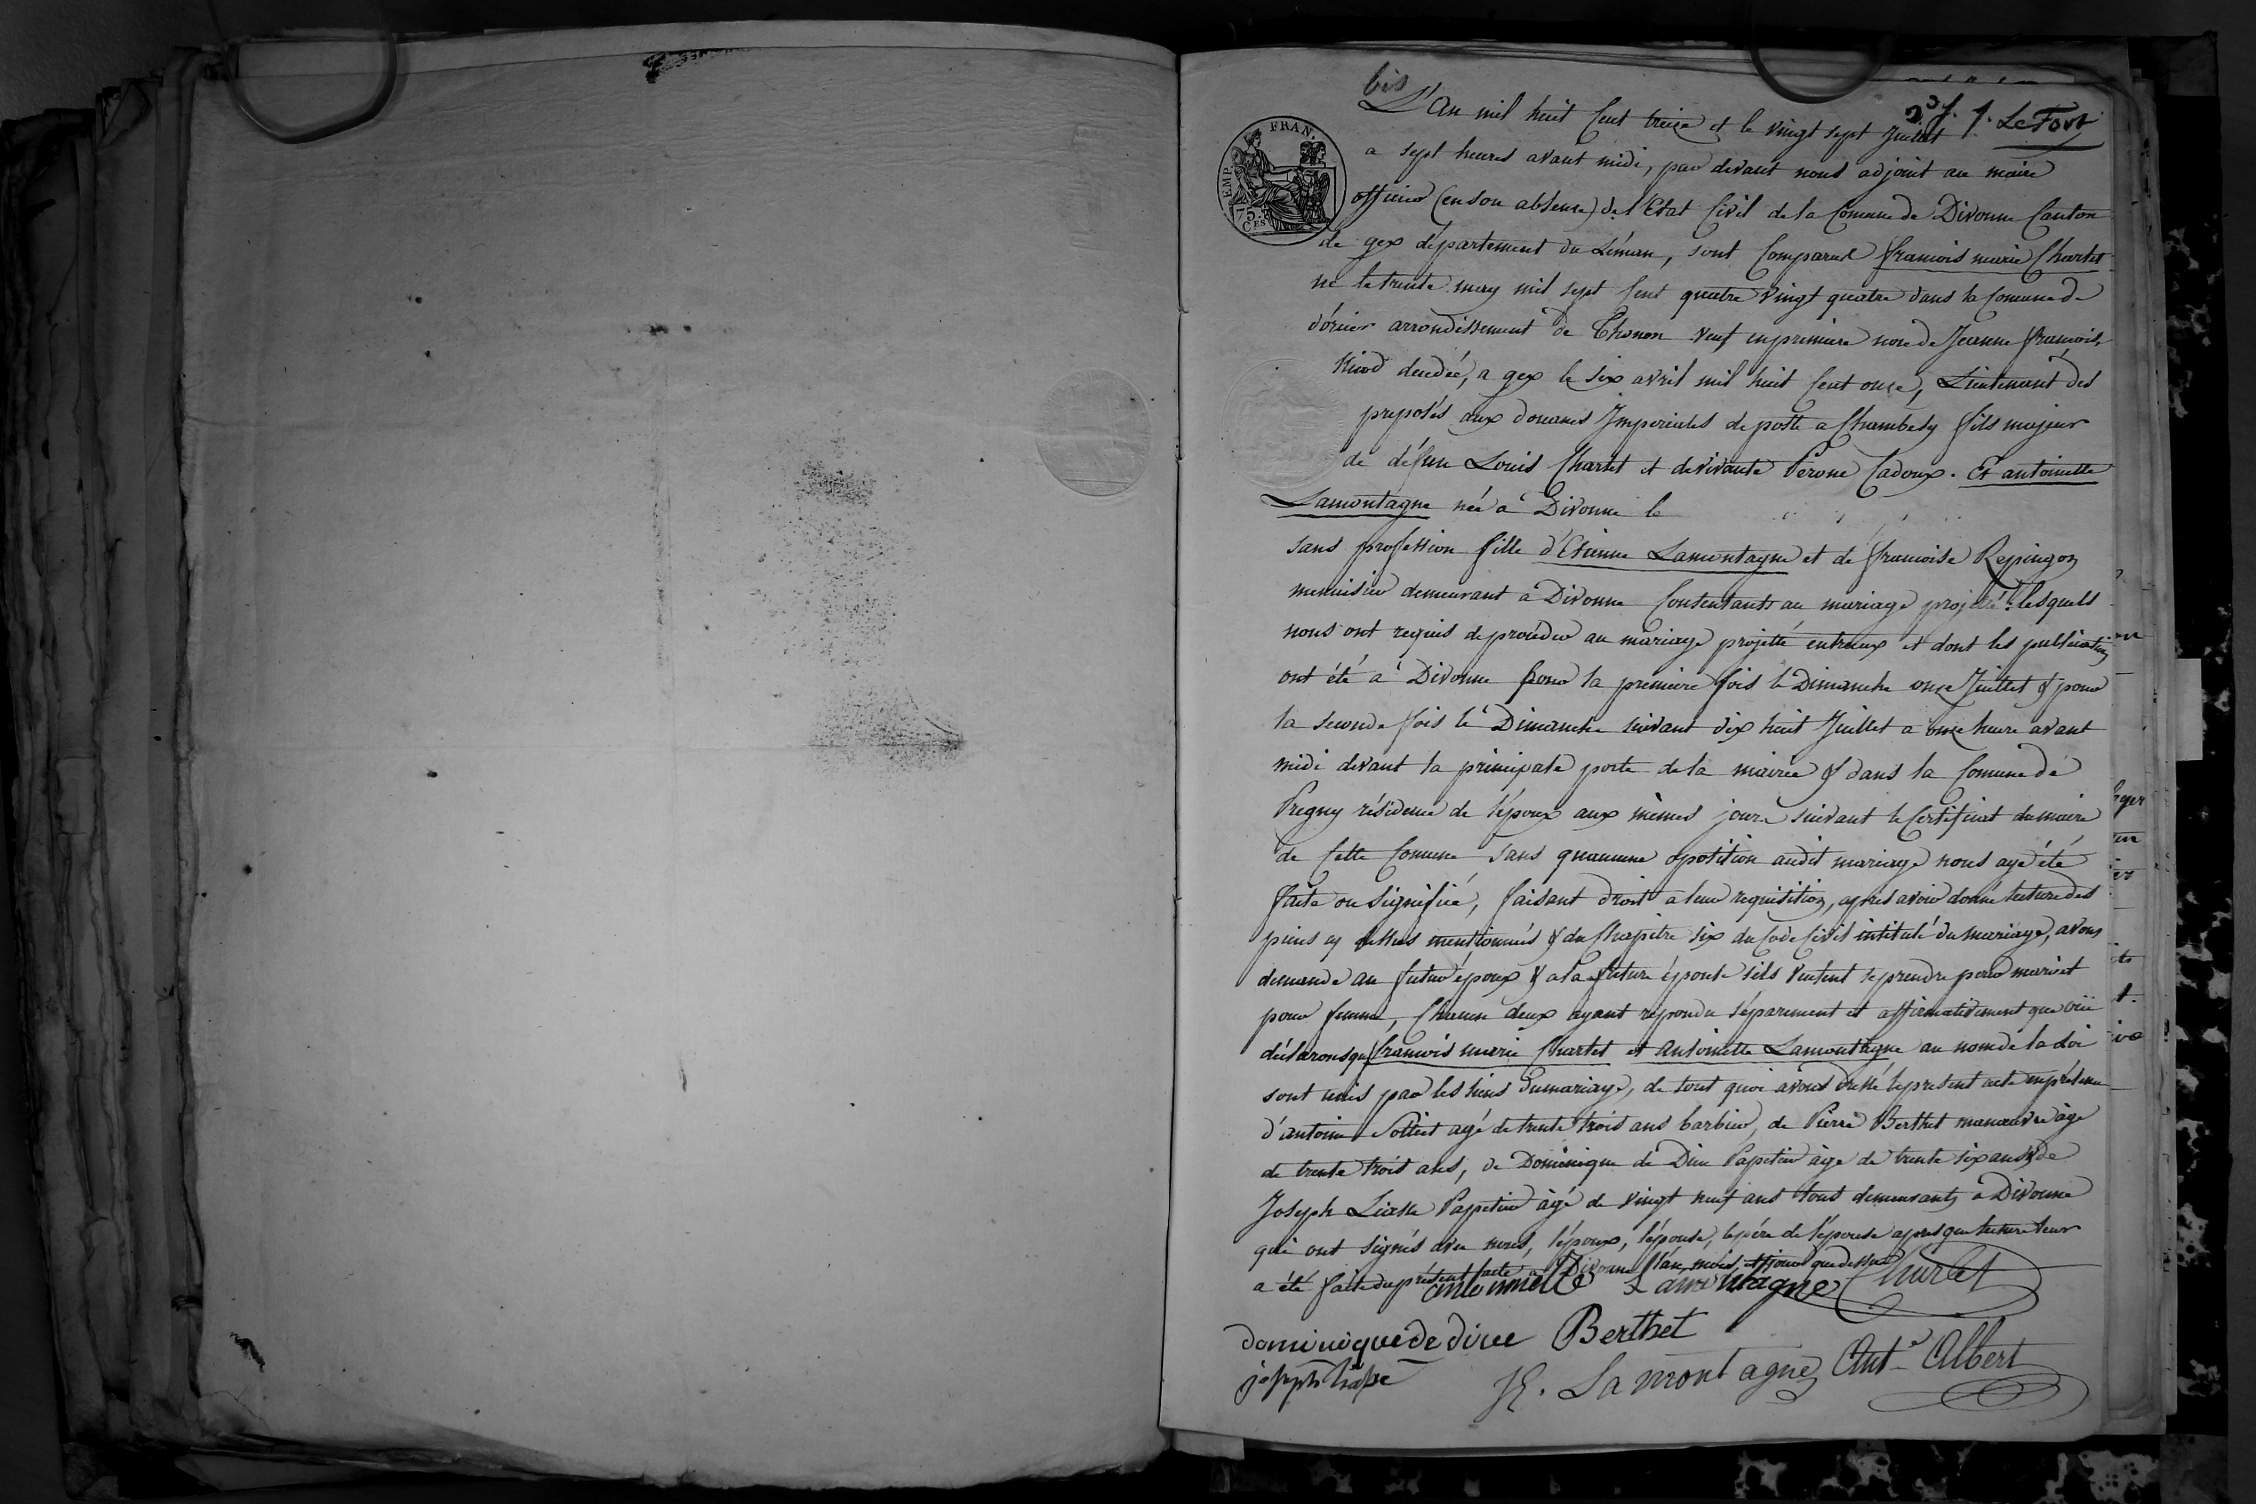 bis
L'An mil huit Cent treize et le vingt sept Juillet
2 f. 1. Le Fort
a sept heures avant midi, par devant nous adjoint au maire
officier (en son absence) de l'Etat Civil de la Comune de Divonne Canton
de gex département du Léman, sont Comparus francois marie Charlet
né le trente may mil sept Cent quatre vingt quatre dans la Comune de
arrondissement de Thonon veuf en premiere noce de Jeanne francoise
décédée, a gex le six avril mil huit Cent onze, Lieutenant des
preposés aux douanes Imperiales de poste a Chambesy fils majeur
de défun Louis Charlet et de vivante Perone Cadoux. Et antoinette
Lamontagne née à Divonne le
sans profession fille d'Etienne Lamontagne et de francoise Repingon
menuisier demeurant à Divonne Consentants au mariage projetté : lesquels
nous ont requis de procéder au mariage projetté entreux et dont les publications
ont été à Divonne pour la premiere fois le Dimanche onze Juillet & pour
la seconde fois le Dimanche suivant dix huit Juillet a onze heure avant
midi devant la principale porte de la mairie & dans la Comune de
Pregny résidence de l'époux aux mêmes jours suivant le Certificat du maire
de Cette Comune sans quaucune opotition audit mariage nous aye été
faite ou signifiée, faisant droit a leur requisition, apres avoir donné lecture des
pieces cy dessus mentionnés & du Chapitre six du Code Civil intitulé du mariage, avons
demandé au futur époux & a la future épouse s'ils veulent se prendre pour mari et
pour femme, Chacun deux ayant répondu séparement et affirmativement que oüi
déclarons que francois marie Charlet et Antoinette Lamontagne au nom de la Loi
sont unis par les liens du mariage, de tout quoi avons dressé le present acte en présence
d'antoine agé de trente trois ans barbier, de Pierre Berthet manœuvre âgé
de trente trois ans, de Dominique de Dieu Papetier âgé de trente six ans & de
Joseph Liasse Papetier âgé de vingt neuf ans tous demeurants à Divonne
qui ont signés avec nous, l'époux, l'épouse, le père de l'épouse apres que lecture leur
a été faite du présent acte à Divonne l'an, mois et jour que dessus
antoinette Lamontagne Charlet
dominique de dieu Berthet
joseph liasse JE. Lamontagne Ant.e Albert
EMP. FRAN.
75.
CES